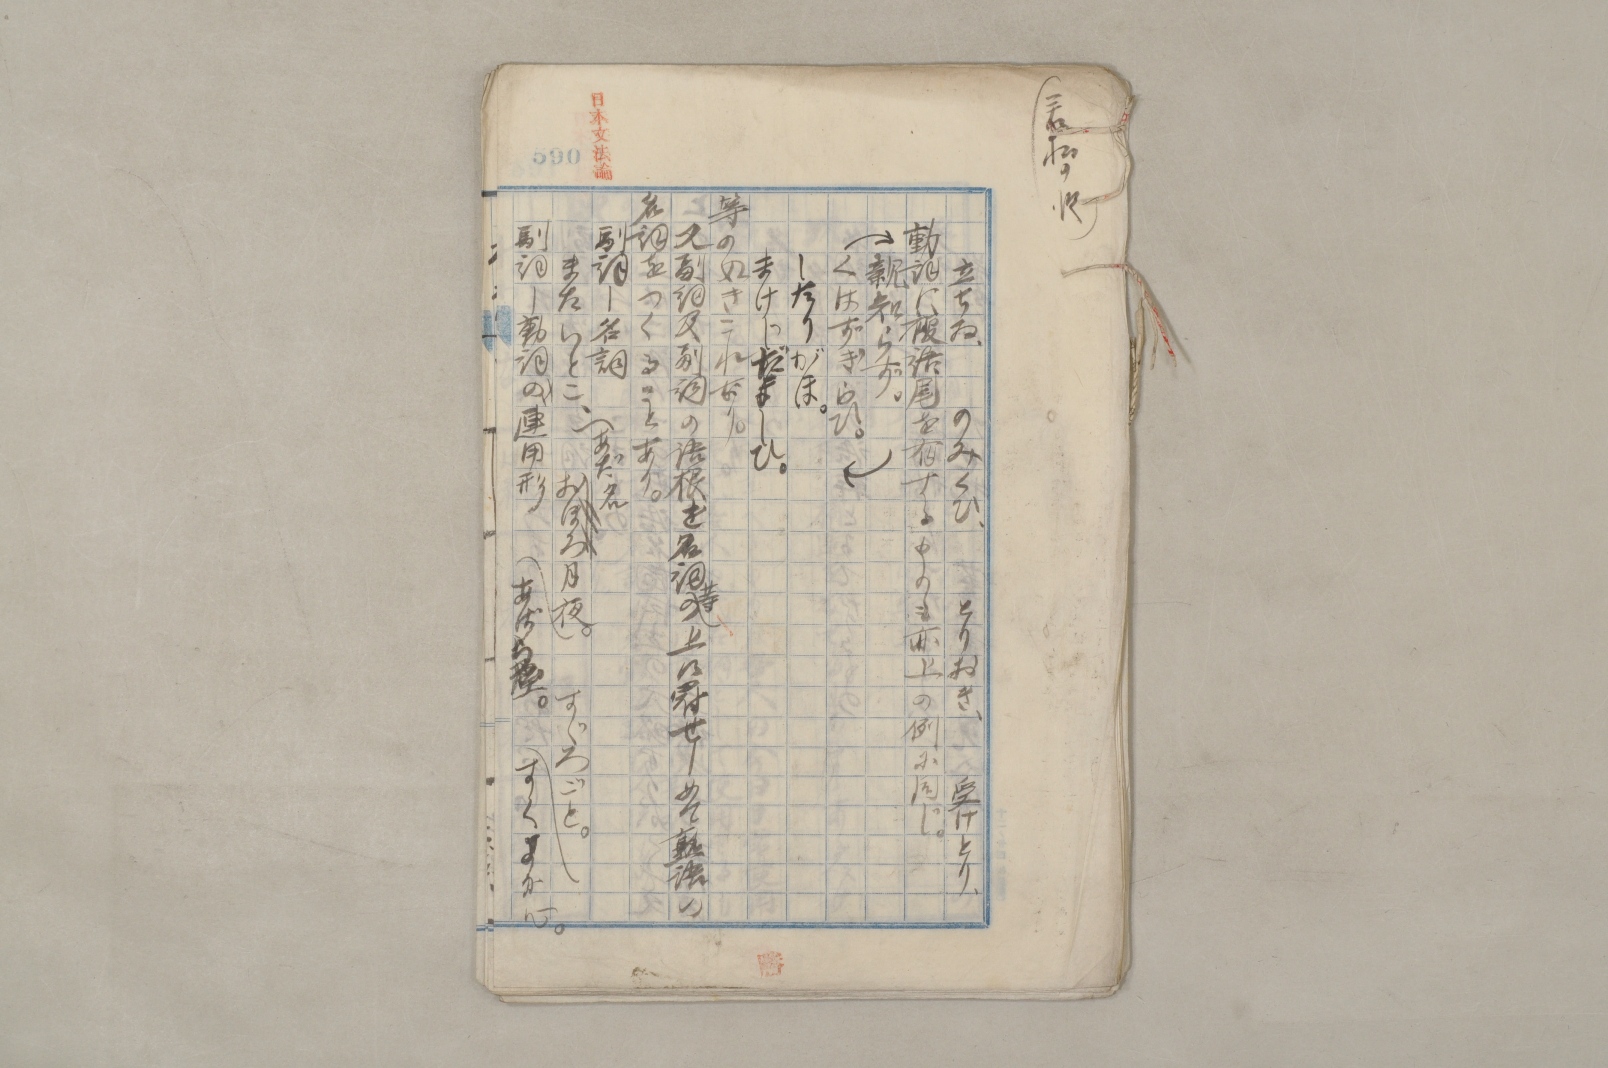 日本文法論
590
立ちゐ、のみくひ、とりおき、受けとり、
動詞に複語尾を有するものも亦上の例に同じ。
親知らず。
くはずぎらひ。
したりがほ。
まけじだましひ。
等の如きこれなり。
又副詞及副詞の語根を名詞の上に冠せしめて熟語の
名詞をつくることあり。
副詞ー名詞 あだ名
またいとこ、おぼろ月夜。すゞろごと。
副詞ー動詞の連用形 すくよか心。